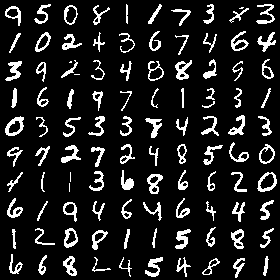 9 5 0 8 1 1 7 3 8 3
1 0 2 4 3 6 7 4 6 4
3 9 2 3 4 8 8 2 9 6
1 6 1 9 7 6 1 3 3 1
0 3 5 3 3 8 4 2 2 3
9 7 2 7 2 4 8 5 6 0
1 1 3 6 8 6 6 2 0
6 1 9 4 6 4 6 4 4 5
1 2 0 8 1 1 5 6 8 5
6 6 8 2 4 5 4 8 9 1